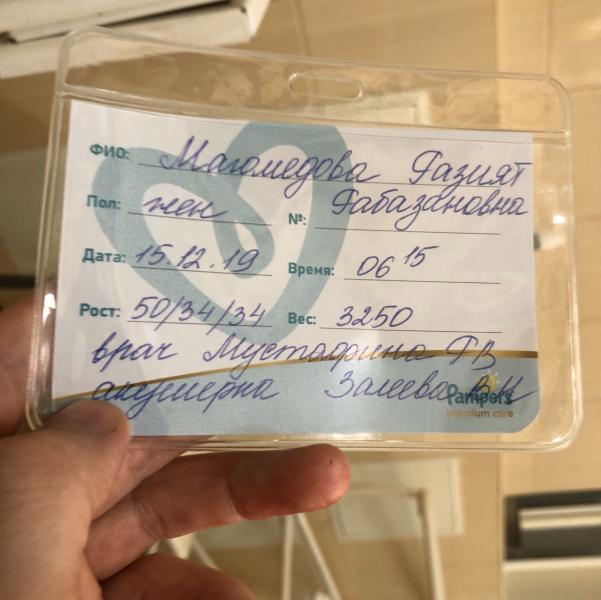 ФИО: Магомедова Разият
Пол: жен №: Рабазановна
Дата: 15.12.19 Время: 06 15
Рост: 50/34/34 Вес: 3250
врач Мустафина
акушерка Залеева
Pampers
premium care